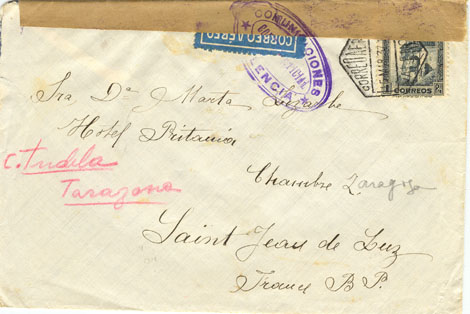 CORREO AÉREO
COMUNICACIONES
CORREO AÉR
CORREOS
Sra Dª Marta
Hotel Britania
C. Tudela
Tarazona
Chambre Zaragoza
Saint Jean de Luz
France B P.